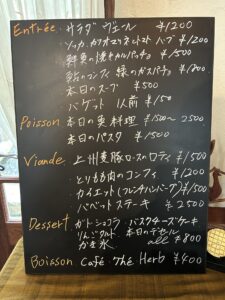 Entrée サラダ ヴェール ¥1200
¥1200
鮮魚の カルパッチョ ¥1500
鮎のコンフィ 緑のガスパチョ ¥1200
本日のスープ ¥500
バゲット 1人前 ¥150
Poisson 本日の魚料理 ¥1500~2500
本日のパスタ ¥1500
Viande 上州麦豚ロースのロティ ¥1500
とりもも肉のコンフィ ¥1200
カイエット(フレンチハンバーグ) ¥1500
バベットステーキ ¥2500
Dessert ガトーショコラ バスクチーズケーキ
りんごタルト 本日のデセル
かき氷 all ¥800
Boisson Café Thé Herb ¥400